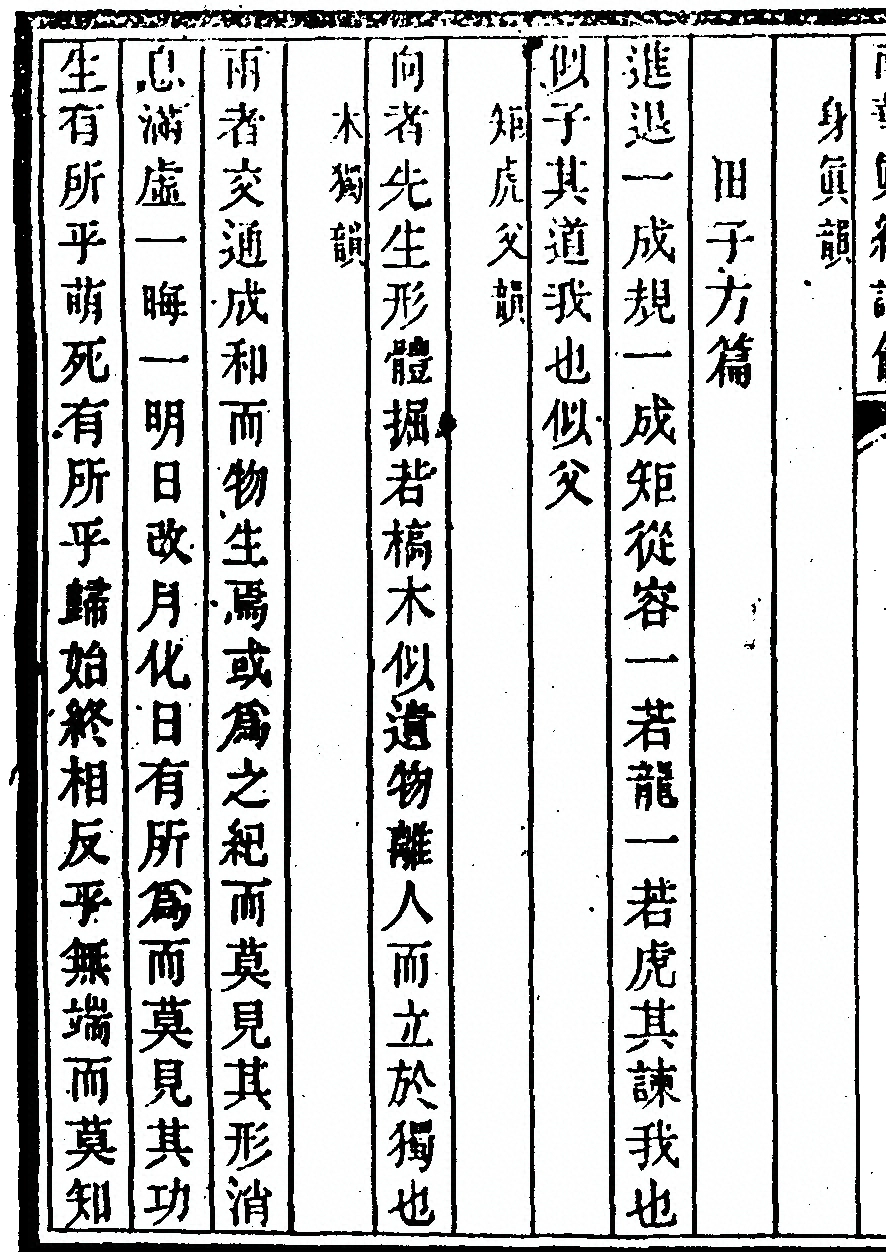 身眞韻
田子方篇
進退一成規一成矩從容一若龍一若虎其諫我也
似子其道我也似父
矩虎父韻
向者先生形體掘若槁木似遺物離人而立於獨也
木獨韻
兩者交通成和而物生焉或爲之紀而莫見其形消
息滿虛一晦一明日改月化日有所爲而莫見其功
生有所乎萌死有所乎歸始終相反乎無端而莫知